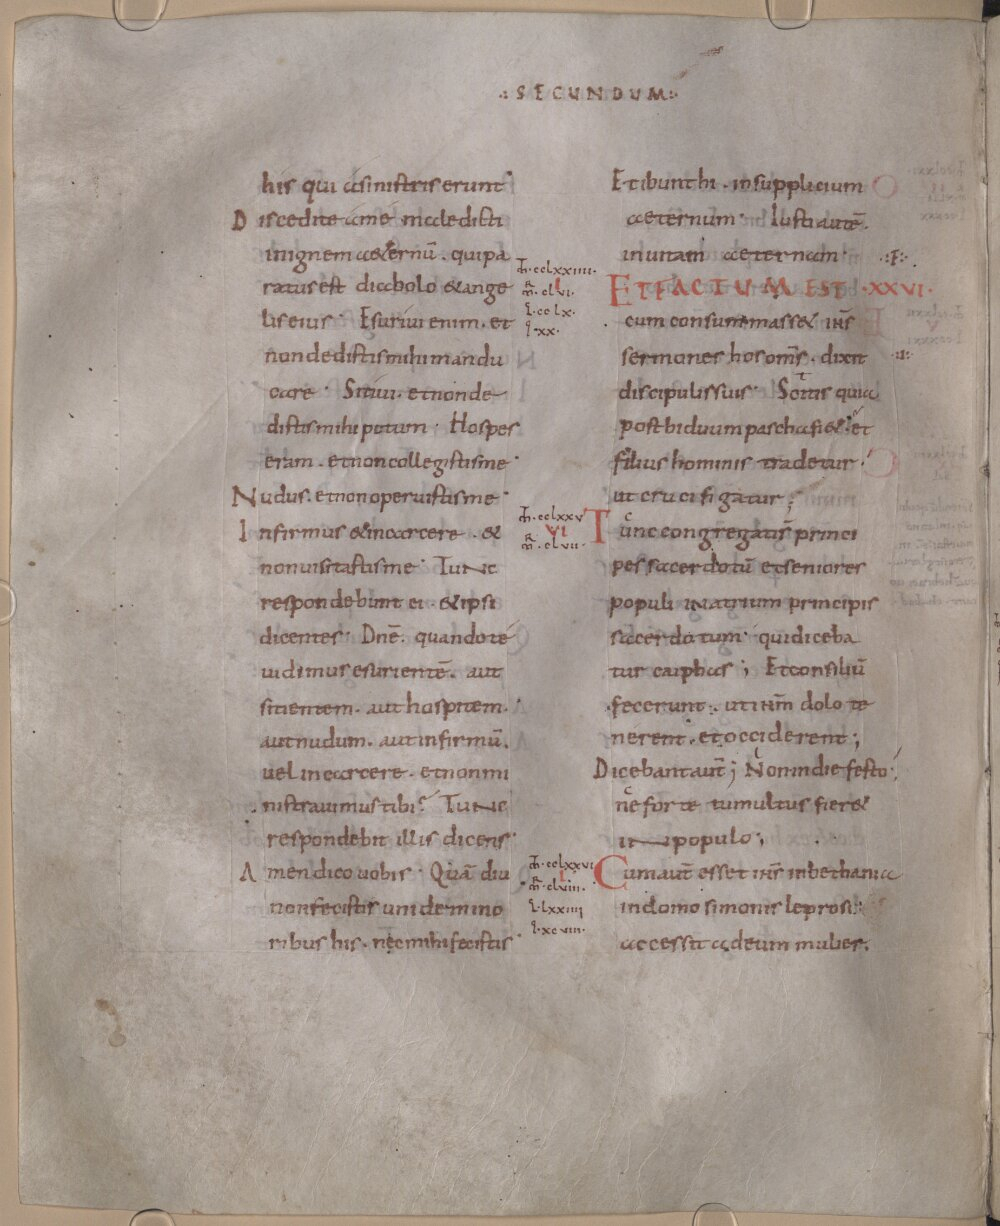 .: SECUNDUM :.
his qui asinistris erunt
Discedite ame maledicti
inignem aeternū. quipa
ratus est diabolo &ange
lis eius. Esuriui enim. et
nondedistis mihi mandu
care. Sitiui. etnonde
distis mihi potum. Hospes
eram. etnoncollegistis me
Nudus. etnon operuistis me
Infirmus &incarcere. &
nonuisitastis me. Tunc
respondebunt ei. &ipsi
dicentes. Dn̄e. quando te
uidimus esurientē. aut
sitientem. aut hospitem.
aut nudum. aut infirmū.
uel incarcere. etnonmi
nistrauimus tibi. Tunc
respondebit illis dicens.
Amen dico uobis. Quādiu
nonfecistis uni demino
ribus his. nec mihi fecistis
m̄. cclxxiiii.
I
m̄r. clvi.
l. cclx.
l. xx.
m̄. cclxxv
VI
m̄r. clvii.
m̄. cclxxvi
I
m̄r. clviii.
l. lxxiiii
l. xcviii.
Et ibunt hi. insupplicium
aeternum. Iusti autē.
inuitam aeternam.
ET FACTUM EST. XXVI.
cum consummass& ih̄s
sermones hos om̄s. dixit
discipulis suis. Scitis quia
post biduum pascha fi&. et
filius hominis tradetur.
ut crucifigatur;
Tunc congregati s̄ princi
pes sacerdotū et seniores
populi inatrium principis
sacerdotum. qui diceba
tur caiphas; Et consiliū
fecerunt. ut ih̄m dolo te
nerent. et occiderent;
Dicebant aūt; Non indie festo;
ne forte tumultus fier&
in populo;
Cum aūt esset ih̄s in bethania
indomo simonis leprosi.
accessit adeum mulier.